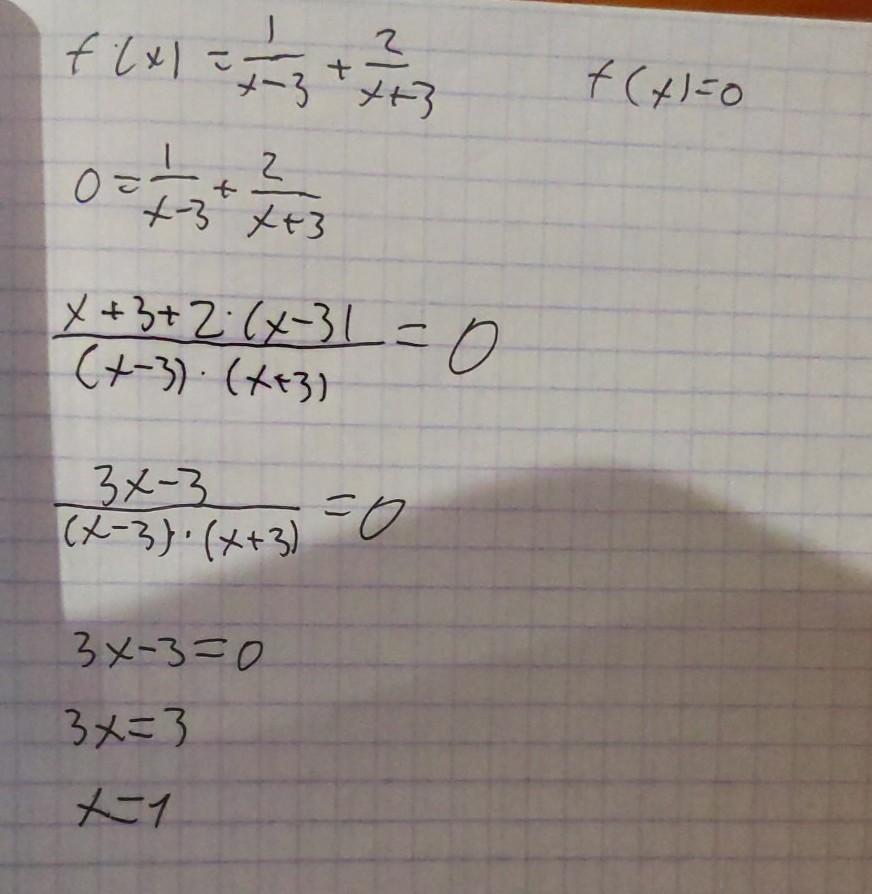 f(x) = 1/(x-3) + 2/(x+3) f(x)=0
0 = 1/(x-3) + 2/(x+3)
(x+3+2·(x-3))/((x-3)·(x+3)) = 0
(3x-3)/((x-3)·(x+3)) = 0
3x-3=0
3x=3
x=1